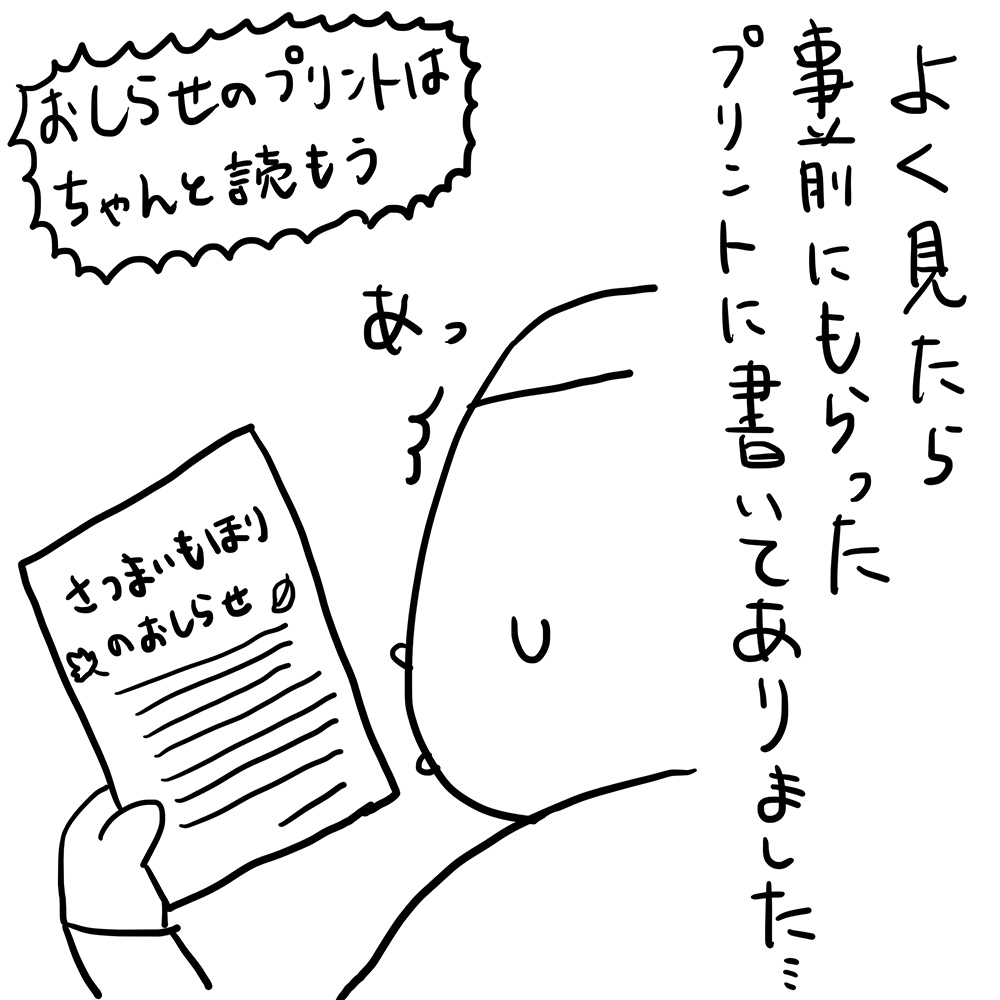 よく見たら
事前にもらった
プリントに書いてありました…
おしらせのプリントは
ちゃんと読もう
あっ
さつまいもほり
のおしらせ